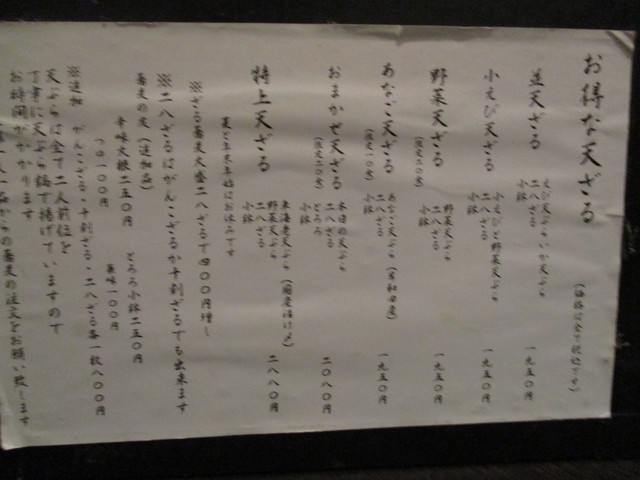 お得な天ざる
(価格は全て税込です)
並天ざる
えび天ぷら・いか天ぷら
二八ざる
小鉢
一九五〇円
小えび天ざる
小えびと野菜天ぷら
二八ざる
小鉢
一九五〇円
野菜天ざる
野菜天ぷら
二八ざる
小鉢
一九五〇円
あなご天ざる
(限定一〇食)
あなご天ぷら
二八ざる
小鉢
一九五〇円
おまかせ天ざる
(限定二〇食)
本日の天ぷら
二八ざる
とろろ
小鉢
二〇八〇円
特上天ざる
東海老天ぷら
野菜天ぷら
二八ざる
小鉢
二八八〇円
夏と年末年始にお休みです
※ざる蕎麦大盛二八ざるで四〇〇円増し
※二八ざるはがんこざるか十割ざるでも出来ます
蕎麦の友(追加品)
辛味大根二五〇円
とろろ小鉢二五〇円
つゆ一〇〇円
薬味一〇〇円
※追加 がんこざる・十割ざる・二八ざる各一枚八〇〇円
天ぷらは全て二人前位を
丁寧に天ぷら鍋で揚げていますので
お時間がかかります
一人一品からの蕎麦の注文をお願い致します